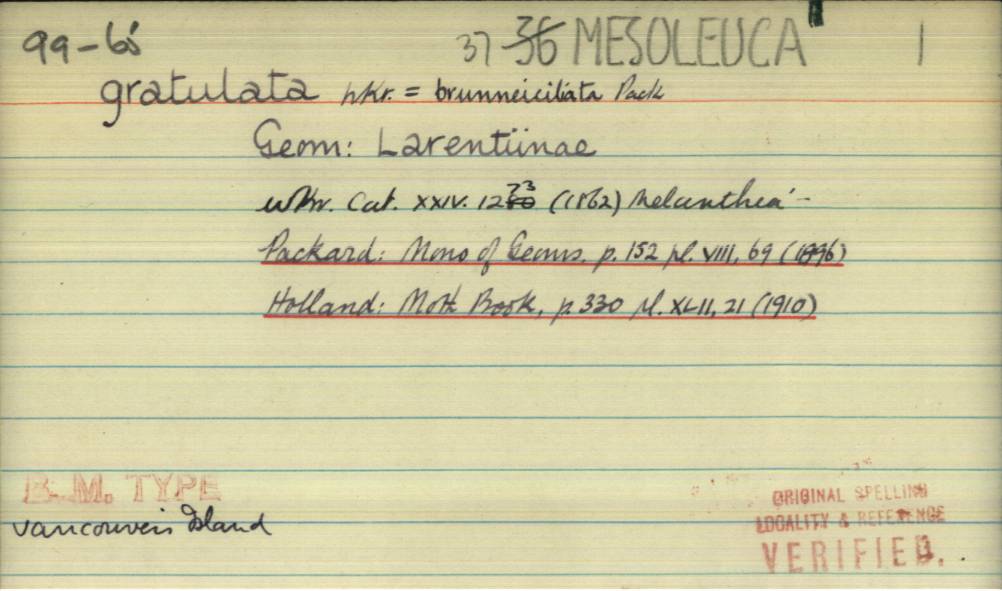 99-65 37 36 MESOLEUCA 1
gratulata Wkr. = brunneiciliata Pack
Geom: Larentiinae
Wkr. Cat. XXIV. 1273 (1862) Melanthia -
Packard: Mono of Geoms. p. 152 pl. VIII, 69 (1896)
Holland: Moth Book, p. 330 pl. XLII, 21 (1910)
B.M. TYPE
Vancouver's Island
ORIGINAL SPELLING
LOCALITY & REFERENCE
VERIFIED.